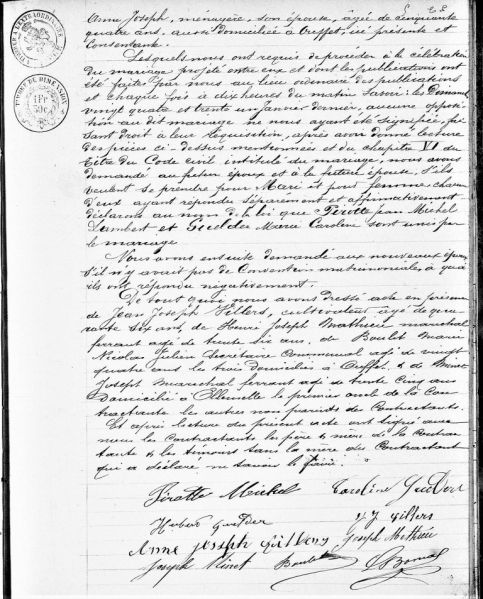 Anne Joseph, ménagère, son épouse, âgée de cinquante
quatre ans, aussi domiciliée à Treffet, ici présente et
Consentante.
Lesquels nous ont requis de procéder à la célébration
du mariage projeté entre eux et dont les publications ont
été faites par nous au lieu ordinaire des publications
et chaque fois à dix heures du matin savoir: les Dimanches
vingt quatre et trente un janvier dernier, aucune opposi
tion au dit mariage ne nous ayant été signifiée, fai
sant droit à leur réquisition, après avoir donné lecture
des pièces ci-dessus mentionnées et du chapitre VI du
titre du Code civil intitulé du mariage, nous avons
demandé au futur époux et à la future épouse s'ils
veulent se prendre pour Mari et pour femme, chacun
d'eux ayant répondu séparément et affirmativement
déclarons au nom de la loi que Pirotte Jean Michel
Lambert et Guelder Marie Caroline sont unis par
le mariage.
Nous avons ensuite demandé aux nouveaux époux
s'il n'y avait pas de Convention matrimoniale, à quoi
ils ont répondu négativement.
De tout quoi nous avons dressé acte en présence
de Jean Joseph Gillers, cultivateur âgé de qua
rante six ans, de Henri Joseph Mathieu maréchal
ferrant âgé de trente six ans, de Boulet Marie
Nicolas Julien Secrétaire Communal âgé de vingt
quatre ans les trois domiciliés à Treffet & de
Joseph Maréchal ferrant âgé de trente cinq ans
Domicilié à le premier oncle de la Con
tractante les autres non parents des Contractants.
Et après lecture du présent acte ont signé avec
nous les Contractants les père & mère de la Contrac
tante & les témoins sans la mère du Contractant
qui a déclaré ne savoir le faire.
Piratte Michel Caroline Guelders
Hubert Guelder J J Gillers
Anne Joseph Gillens Joseph Mathieu
Joseph Boulet